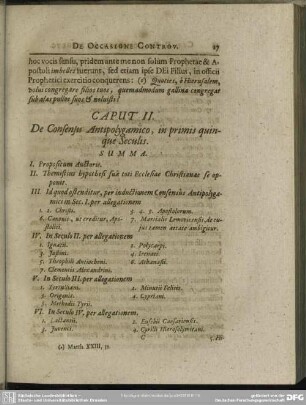 DE OCCASIONE CONTROV. 17
hoc vocis sensu, pridem ante me non solum Prophetae & A-
postoli imbelles fuerunt, sed etiam ipse DEI Filius, in officii
Prophetici exercitio conquerens: (e) Quoties, ô Hierusalem,
volui congregare filios tuos, quemadmodum gallina congregat
sub alas pullos suos & noluistis!
CAPUT II.
De Consensu Antipolygamico, in primis quin-
que Seculis.
SUMMA.
I. Propositum Auctoris.
II. Themistius hypothesi suâ toti Ecclesiae Christianae se op-
ponit.
III. Id quod ostenditur, per inductionem Consensus Antipolyga-
mici in Sec. I. per allegationem
1. 2. Christi.
3. 4. 5. Apostolorum.
6. Canonis, ut creditur, Apo-
stolici.
7. Martialis Lemovicensis, de cu-
jus tamen aetate ambigitur.
IV. In Seculo II. per allegationem
1. Ignatii.
2. Polycarpi.
3. Justini.
4. Irenaei.
5. Theophili Antiocheni.
6. Athenagorae.
7. Clementis Alexandrini.
V. In Seculo III. per allegationem
1. Tertulliani.
2. Minutii Felicis.
3. Origenis.
4. Cypriani.
5. Methodii Tyrii.
VI. In Seculo IV. per allegationem.
1. Lactantii.
2. Eusebii Caesariensis.
3. Juvenci.
4. Cyrilli Hierosolymitani.
C
(e) Matth. XXIII, 37.
Sächsische Landesbibliothek -
Staats- und Universitätsbibliothek Dresden
Deutsche Forschungsgemeinschaft
DFG